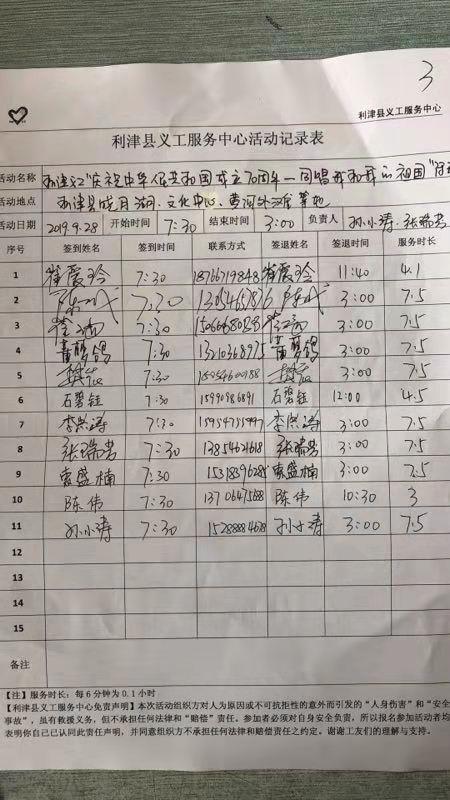 3
利津县义工服务中心
利津县义工服务中心活动记录表
活动名称 利津义工"庆祝中华人民共和国成立70周年—同唱我和我的祖国"
活动地点 利津县 月湖、文化中心、黄河外滩等地
活动日期 2019.9.28 开始时间 7:30 结束时间 3:00 负责人 孙小涛、张瑞芳
序号 签到姓名 签到时间 联系方式 签退姓名 签退时间 服务时长
1 崔霞玲 7:30 18766719848 崔霞玲 11:40 4.1
2 7:30 3:00 7.5
3 7:30 3:00 7.5
4 7:30 13210368975 3:00 7.5
5 7:30 3:00 7.5
6 石碧钰 7:30 石碧钰 12:00 4.5
7 李洪涛 7:30 李洪涛 3:00 7.5
8 张瑞芳 7:30 13854621618 张瑞芳 3:00 7.5
9 袁盛楠 7:30 袁盛楠 3:00 7.5
10 陈伟 7:30 13706475688 陈伟 10:30 3
11 孙小涛 7:30 孙小涛 3:00 7.5
12
13
14
15
备注
【注】服务时长：每6分钟为0.1小时
【利津县义工服务中心免责声明】本次活动组织方对人为原因或不可抗拒性的意外而引发的"人身伤害"和"安全
事故"，虽有救援义务，但不承担任何法律和"赔偿"责任。参加者必须对自身安全负责，所以报名参加活动者均
表明你自己已认同此责任声明，并同意组织方不承担任何法律和赔偿责任之约定。谢谢工友们的理解与支持。